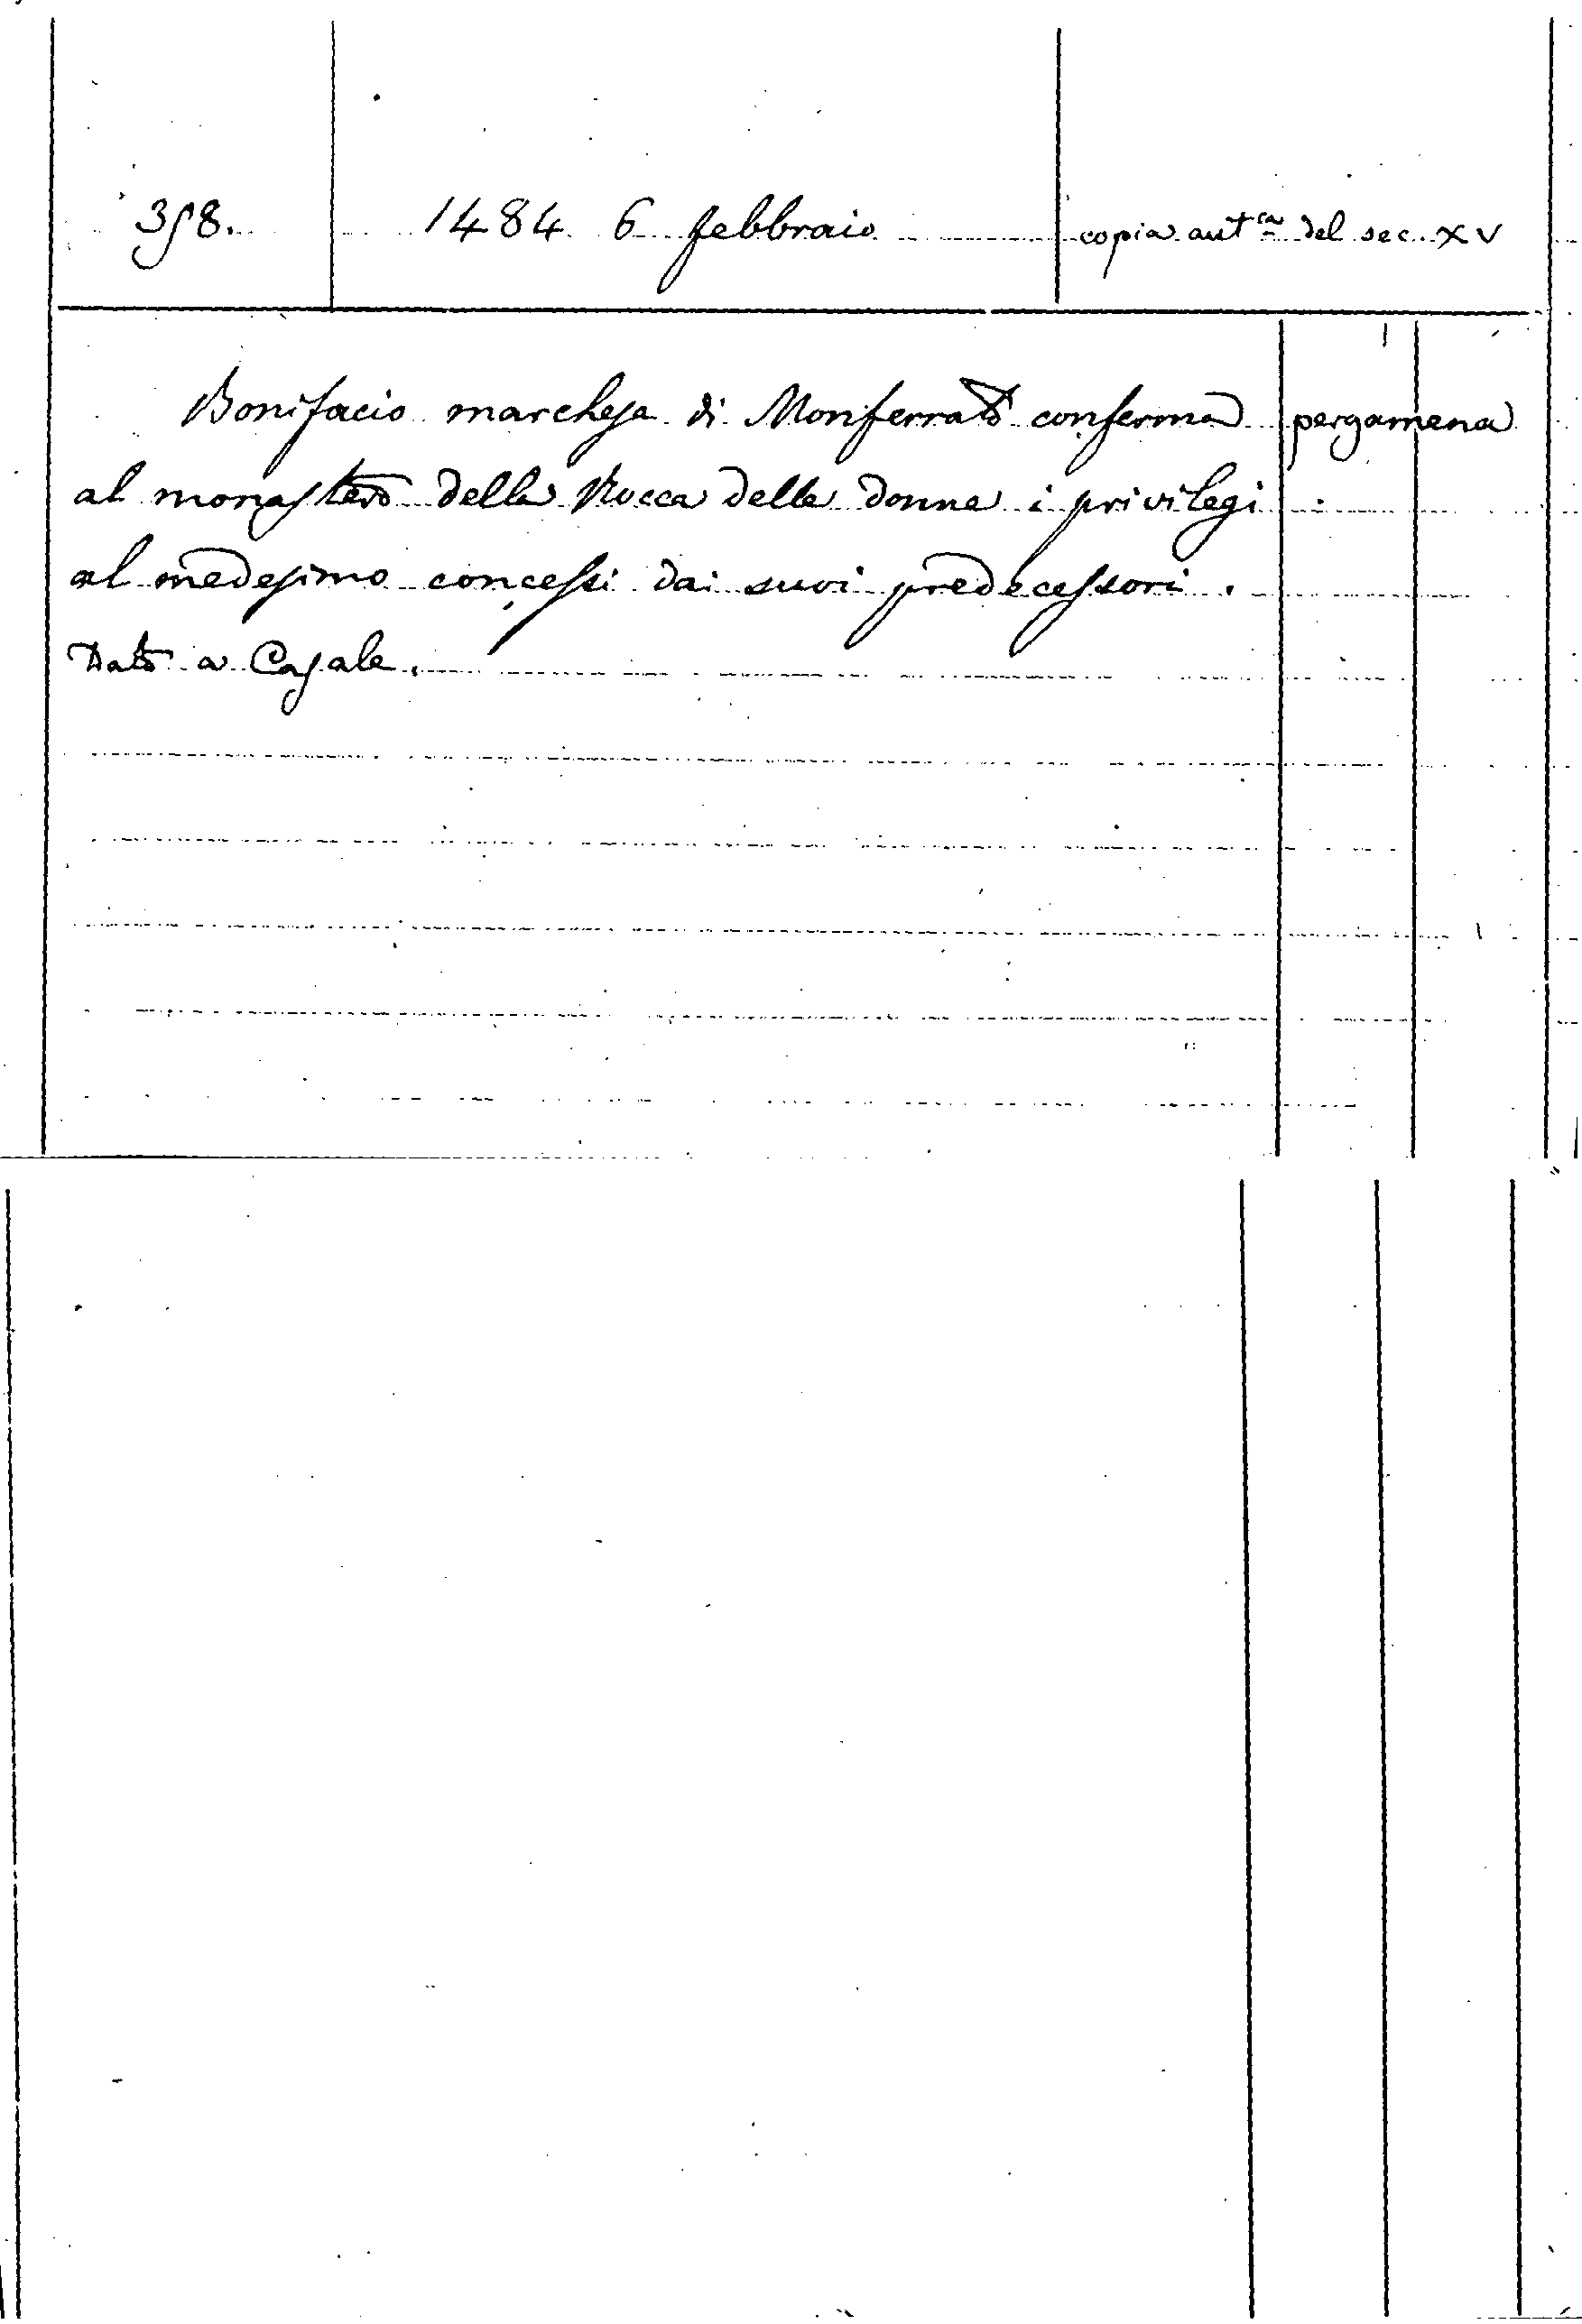 358. 1484 6 febbraio copia aut.ca del sec. XV
Bonifacio marchese di Monferrato conferma pergamena
al monastero della Rocca delle donne i privilegi
al medesimo concessi dai suoi predecessori.
Dato a Casale.